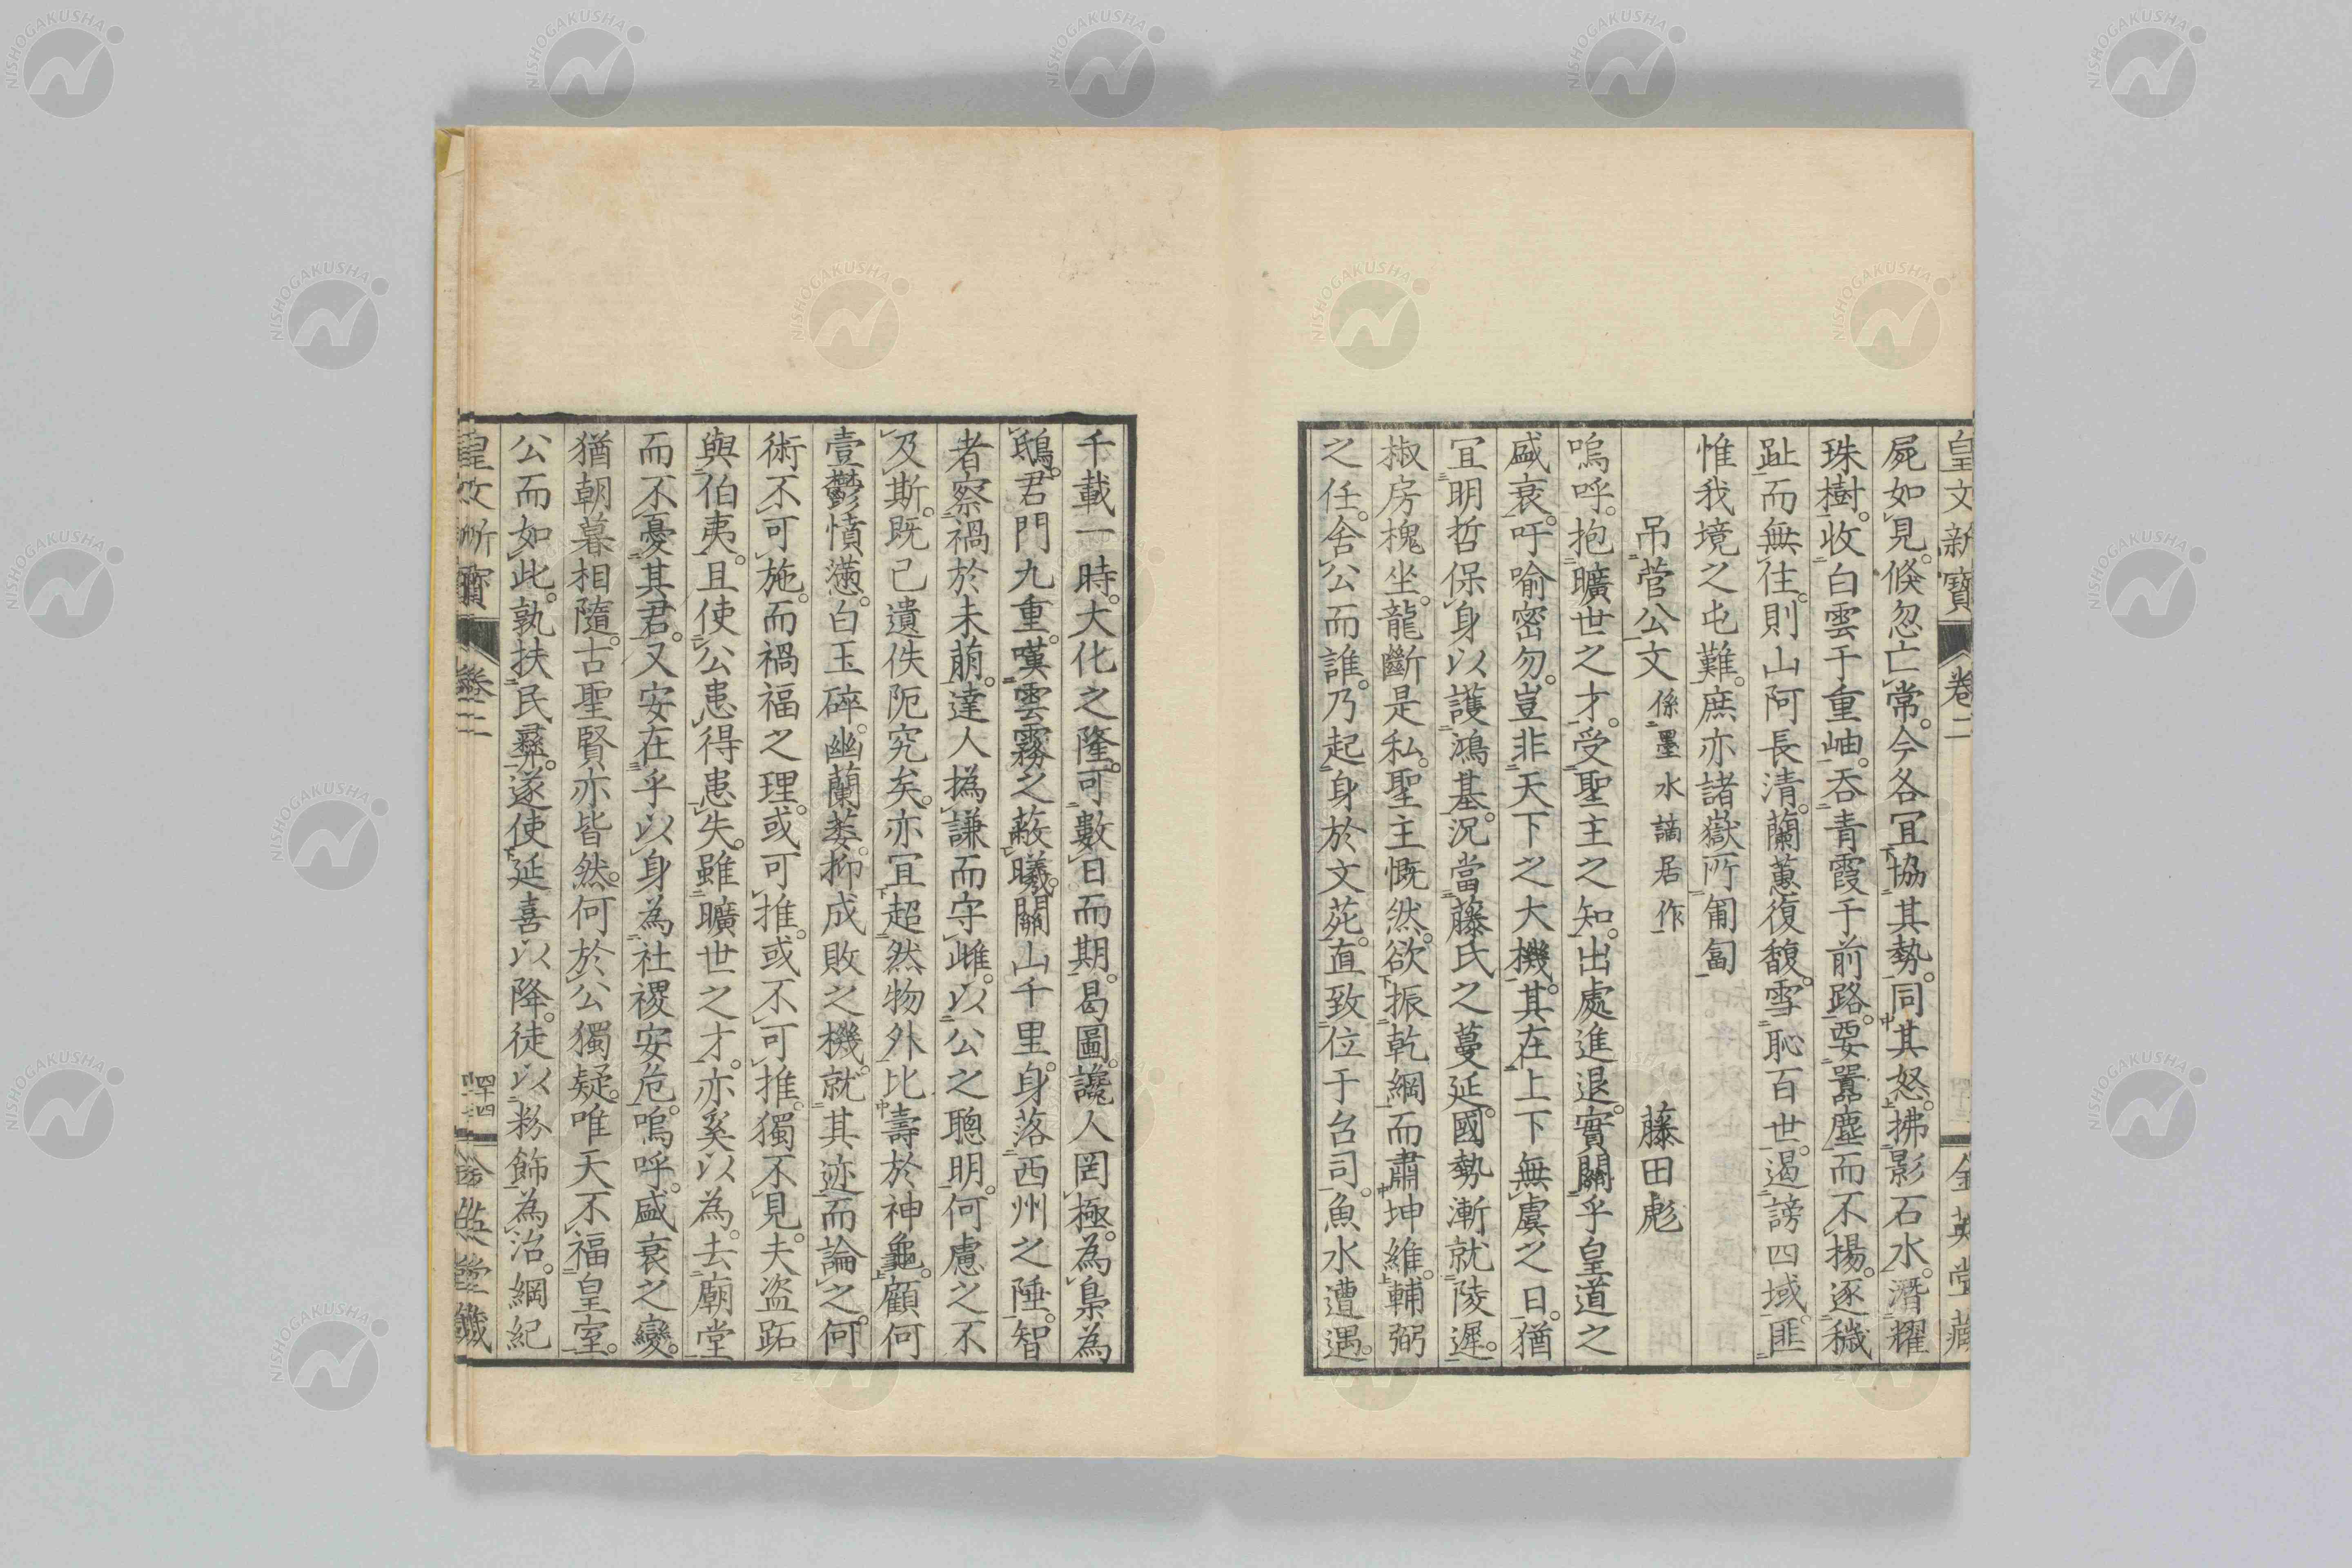 皇文新寶 卷二 金英堂藏
屍如見。倏忽亡常。今各冝協其勢。同其怒。拂影石水。潛耀
珠樹。收白雲于重岫。吞青霞于前路。要囂塵而不揚。逐穢
趾而無住。則山阿長清。蘭蕙復馥。雪恥百世。遏謗四域。匪
惟我境之屯難。庶亦諸嶽所匍匐
吊菅公文 係墨水謫居作 藤田彪
嗚呼。抱曠世之才。受聖主之知。出處進退。實關乎皇道之
盛衰。吁喻密勿。豈非天下之大機。其在上下無虞之日。猶
冝明哲保身以護鴻基。況當藤氏之蔓延。國勢漸就陵遲。
椒房槐坐。龍斷是私。聖主慨然。欲振乾綱而肅坤維。輔弼
之任。舍公而誰。乃起身於文苑。直致位于台司。魚水遭遇。
千載一時。大化之隆。可數日而期。曷圖。讒人罔極。為梟為
鴟。君門九重。嘆雲霧之蔽曦。關山千里。身落西州之陲。智
者察禍於未萠。達人撝謙而守雌。以公之聰明。何慮之不
及斯。既已遺佚阨究矣。亦冝超然物外比壽於神龜。顧何
壹鬱憤懣。白玉碎。幽蘭萎。抑成敗之機。就其迹而論之。何
術不可施。而禍福之理。或可推。或不可推。獨不見。夫盜跖
與伯夷。且使公患得患失。雖曠世之才。亦奚以為。去廟堂
而不憂其君。又安在乎以身為社禝安危。嗚呼。盛衰之變。
猶朝暮相隨。古聖賢亦皆然。何於公獨疑。唯天不福皇室。
公而如此。孰扶民彞。遂使延喜以降。徒以粉飾為治。綱紀
皇文新寶 卷二 四十四